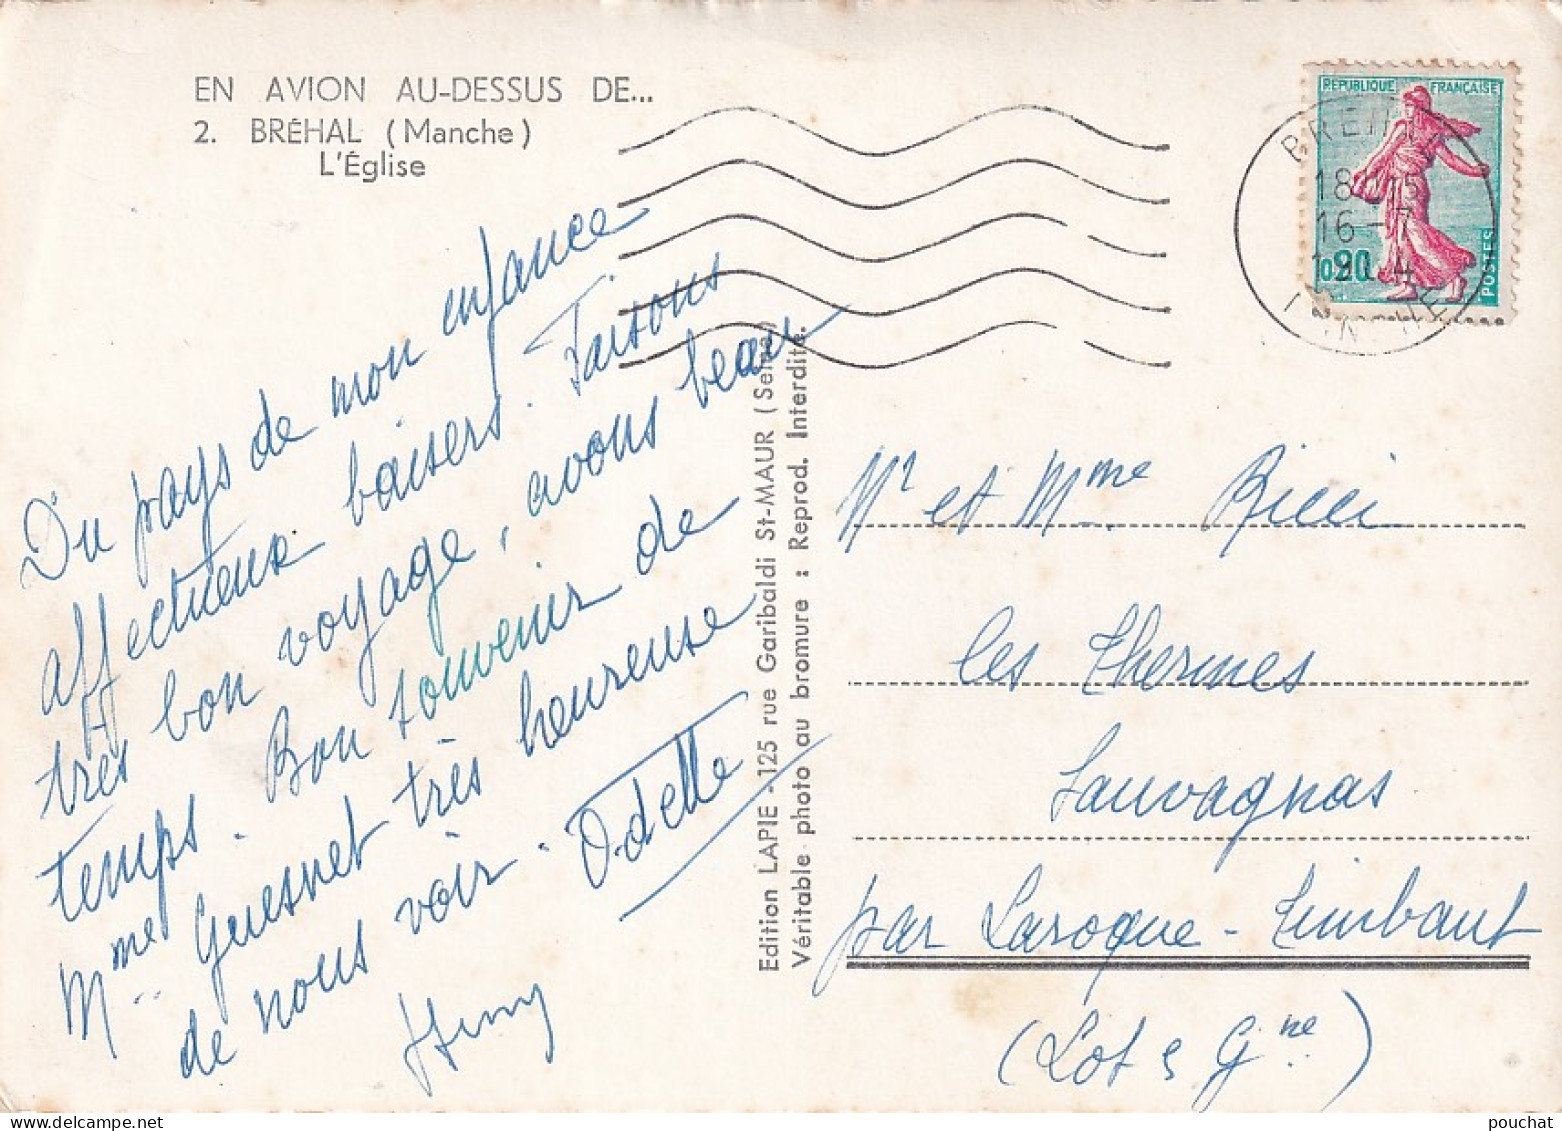 EN AVION AU-DESSUS DE...
2. BRÉHAL (Manche)
L'Église
Du pays de mon enfance
affectueux baisers. Faisons
très bon voyage, avons beau
temps. Bon souvenir de
Mme Guesnet très heureuse
de nous voir. Odette
Edition LAPIE - 125 rue Garibaldi St-MAUR (Seine)
Véritable photo au bromure : Reprod. Interdite.
REPUBLIQUE FRANÇAISE
0,20
POSTES
18-15
16-7
Mr et Mme Ricci
les Thermes
Sauvagnas
par Laroque-Timbaut
(Lot & Gne)
pouchat